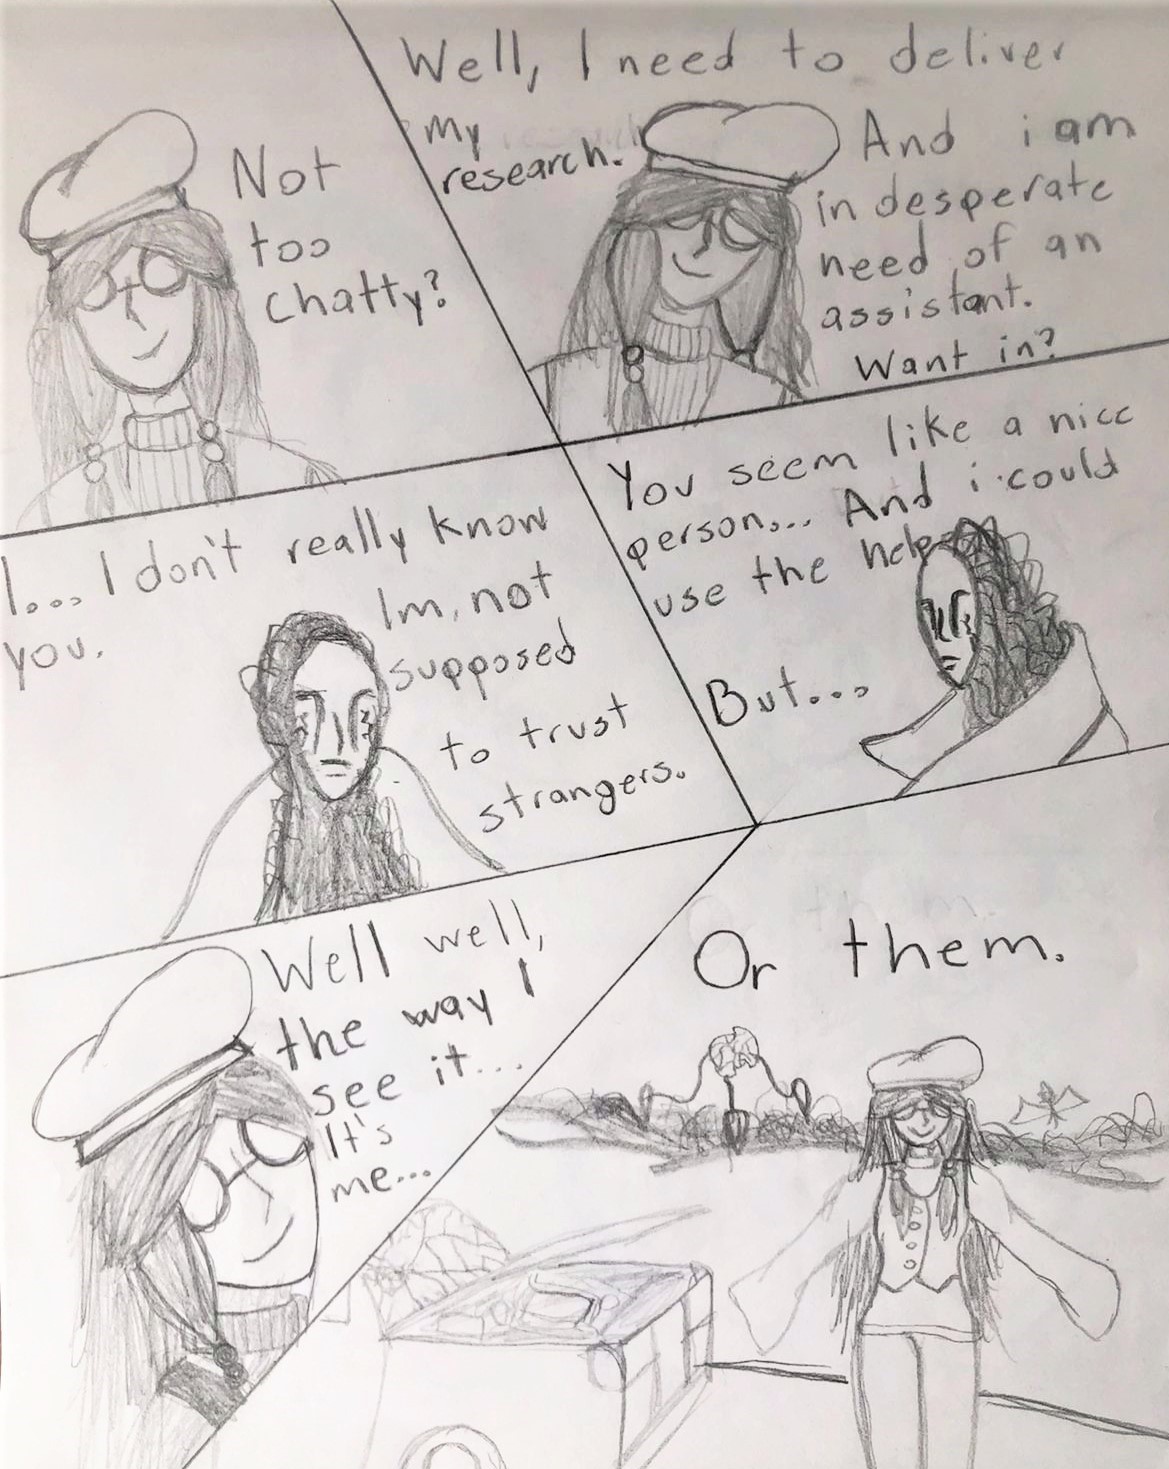 Not
too
chatty?
Well, I need to deliver
my
research.
And i am
in desperate
need of an
assistant.
Want in?
I... I don't really know
you.
Im, not
supposed
to trust
strangers.
You seem like a nice
person... And i could
use the help
But...
Well well,
the way I
see it...
It's
me...
Or them.